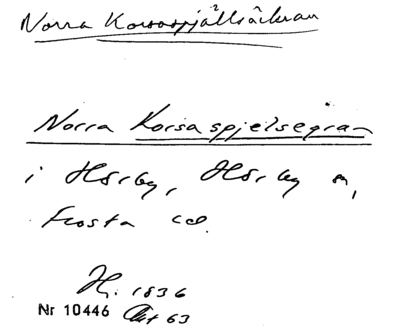 Norra Korsaspjällsåkran
Norra Korsaspjelsegran
i Hörby, Hörby s,
Frosta hd.
H. 1836
Nr 10446 Akt 63